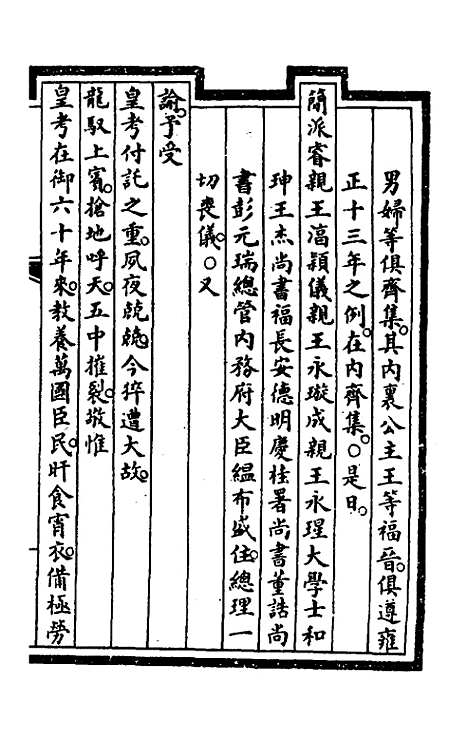 男婦等俱齊集。其內裏公主王等福晉。俱遵雍
正十三年之例。在內齊集。○是日。
簡派睿親王淳穎儀親王永璇成親王永瑆大學士和
珅王杰尚書福長安德明慶桂署尚書董誥尚
書彭元瑞總管內務府大臣縕布盛住。總理一
切喪儀。○又
諭。予受
皇考付託之重。夙夜兢兢。今猝遭大故。
龍馭上賓。搶地呼天。五中摧裂。敬惟
皇考在御六十年來。教養萬國臣民。旰食宵衣。備極勞